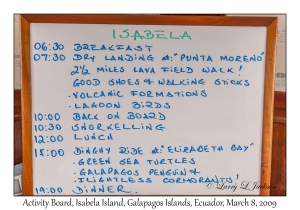 ISABELA
06:30 BREAKFAST
07:30 DRY LANDING at: "PUNTA MORENO"
2½ MILES LAVA FIELD WALK!
GOOD SHOES & WALKING STICKS
• VOLCANIC FORMATIONS
• LAGOON BIRDS
10:00 BACK ON BOARD
10:30 SNORKELLING
12:00 LUNCH
15:00 DINGHY RIDE at: "ELIZABETH BAY"
• GREEN SEA TURTLES
• GALAPAGOS PENGUIN &
• FLIGHTLESS CORMORANTS!
19:00 DINNER
© Larry L Jackson
Activity Board, Isabela Island, Galapagos Islands, Ecuador, March 8, 2009